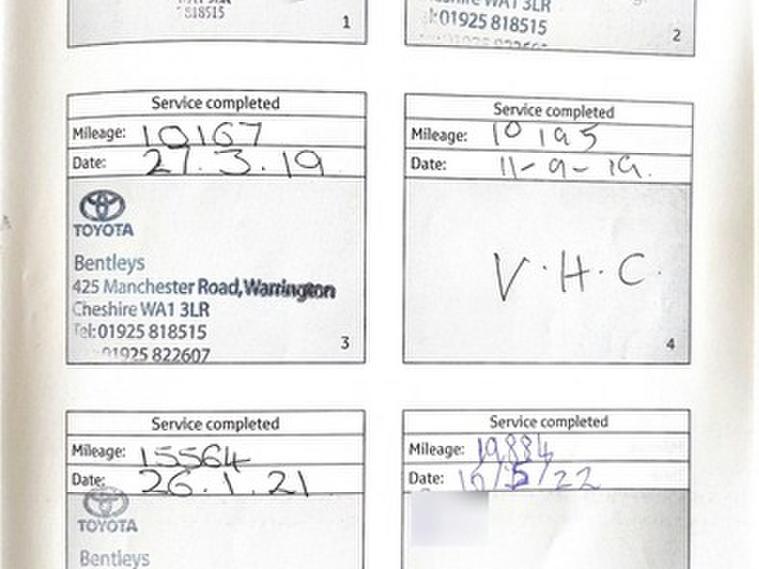 818515
1
Cheshire WA1 3LR
Tel:01925 818515
2
Service completed
Mileage: 10167
Date: 27.3.19
TOYOTA
Bentleys
425 Manchester Road, Warrington
Cheshire WA1 3LR
Tel:01925 818515
01925 822607
3
Service completed
Mileage: 10195
Date: 11-9-19.
V.H.C.
4
Service completed
Mileage: 15564
Date: 26.1.21
TOYOTA
Bentleys
Service completed
Mileage: 19,884
Date: 16/5/22